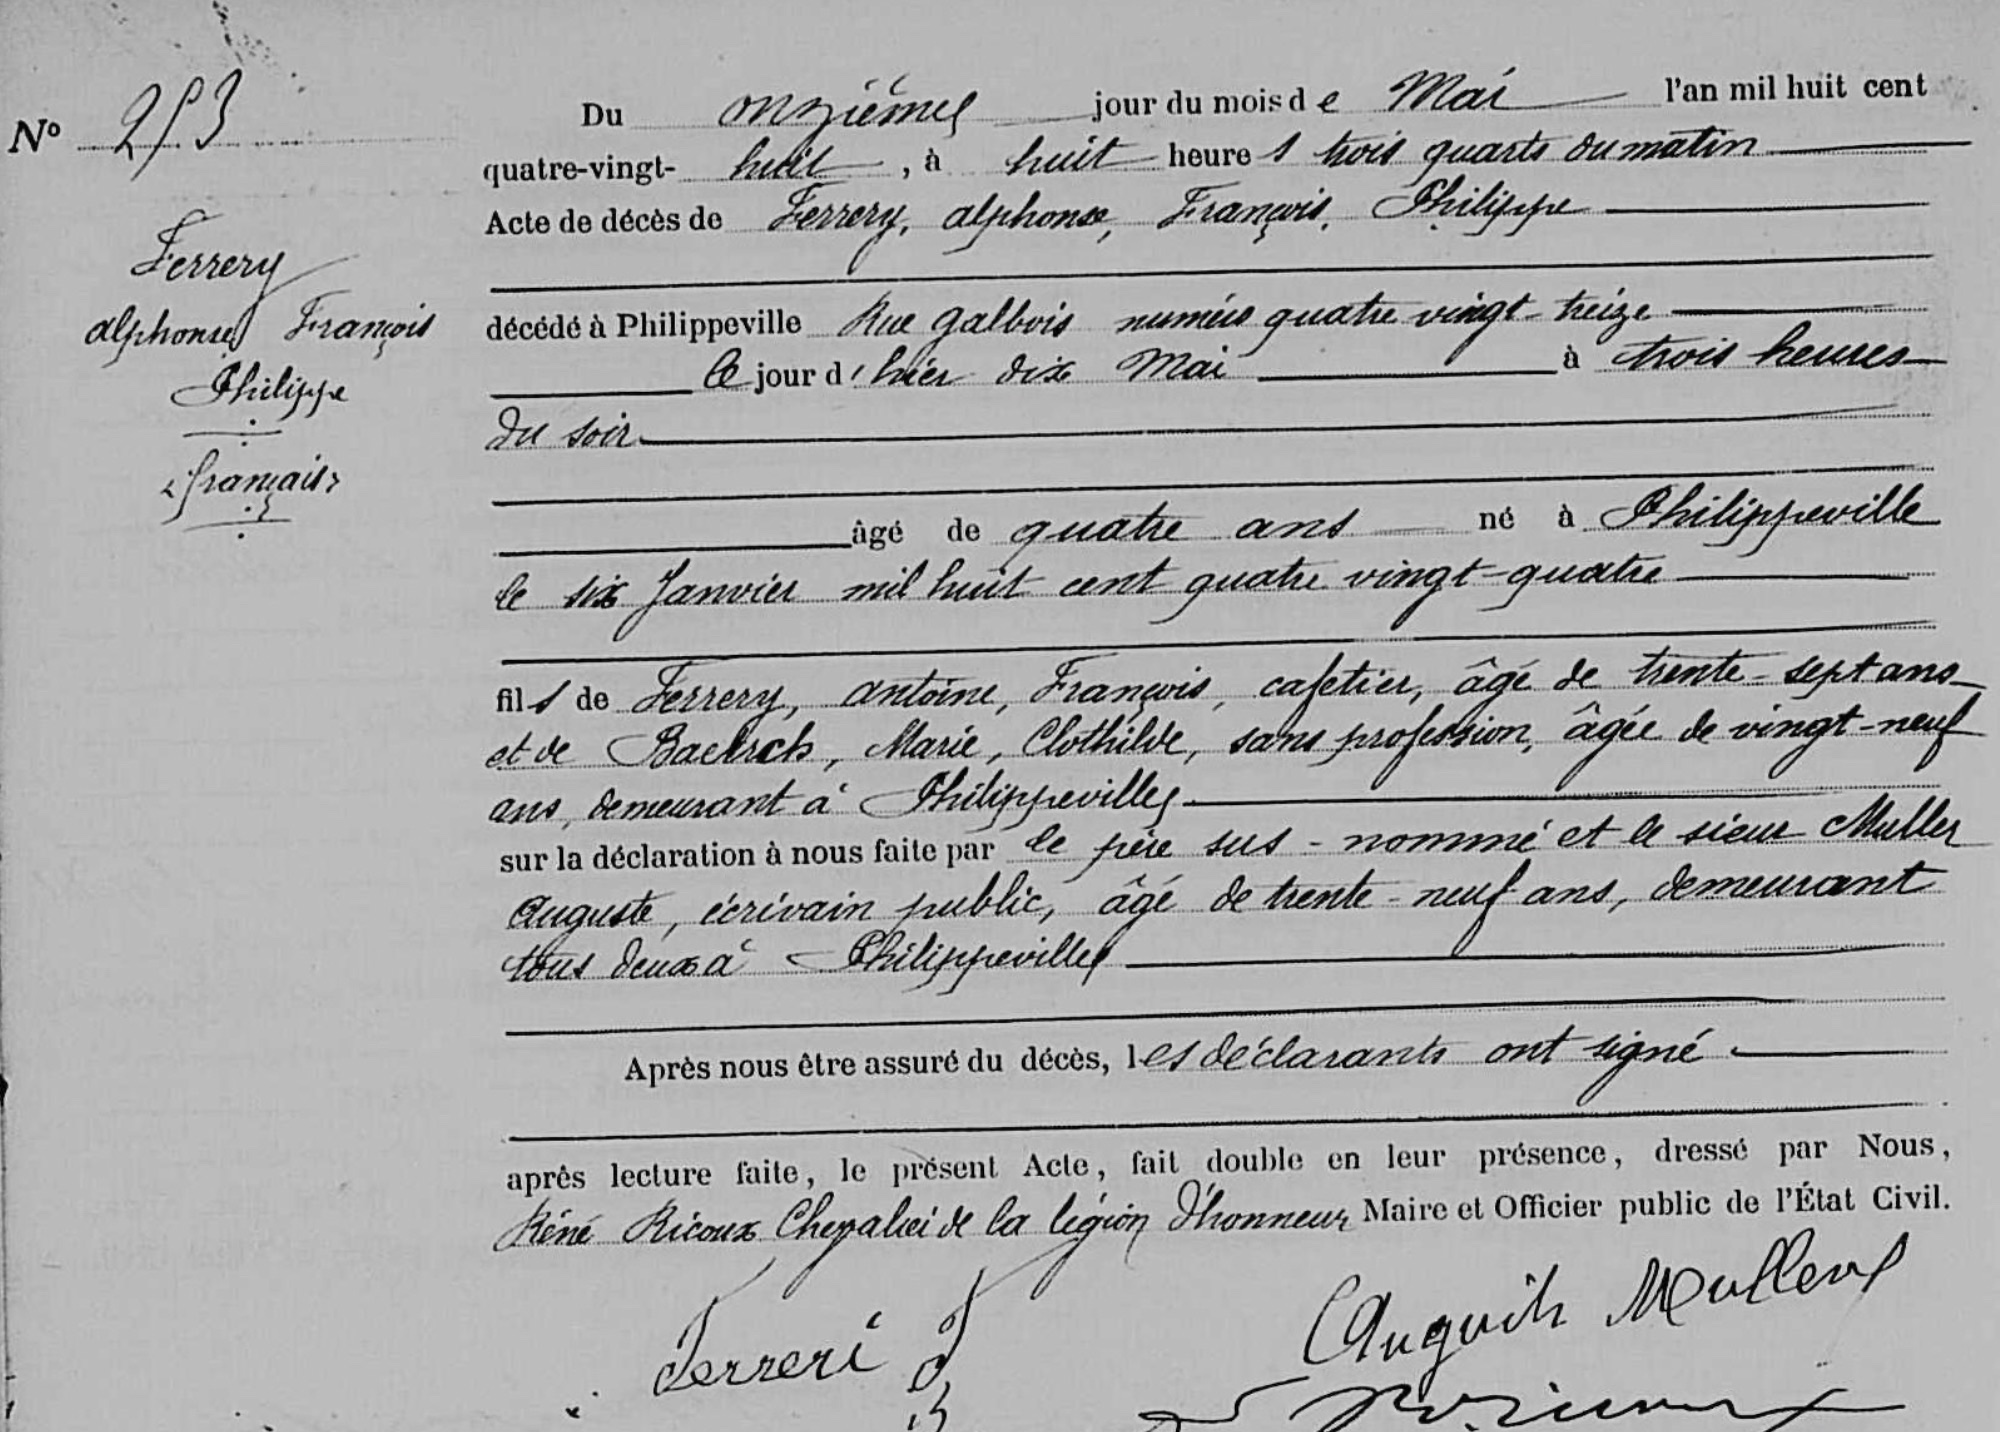 N° 253
Du onzième jour du mois de Mai l'an mil huit cent
quatre-vingt-huit, à huit heures trois quarts du matin
Acte de décès de Ferrery, alphonse, François, Philippe
Ferrery
alphonse François
Philippe
«français»
décédé à Philippeville Rue galbois numéro quatre vingt-treize
le jour d'hier dix Mai à trois heures
du soir
âgé de quatre ans né à Philippeville
le six Janvier mil huit cent quatre vingt-quatre
fils de Ferrery, antoine, François, cafetier, âgé de trente-sept ans
et de , Marie, Clothilde, sans profession, âgée de vingt-neuf
ans, demeurant à Philippeville
sur la déclaration à nous faite par le père sus-nommé et le sieur Muller
Auguste, écrivain public, âgé de trente-neuf ans, demeurant
tous deux à Philippeville
Après nous être assuré du décès, les déclarants ont signé
après lecture faite, le présent Acte, fait double en leur présence, dressé par Nous,
Réné Ricoux Chevalier de la légion d'honneur Maire et Officier public de l'État Civil.
Ferreri
Auguste Muller
Ricoux